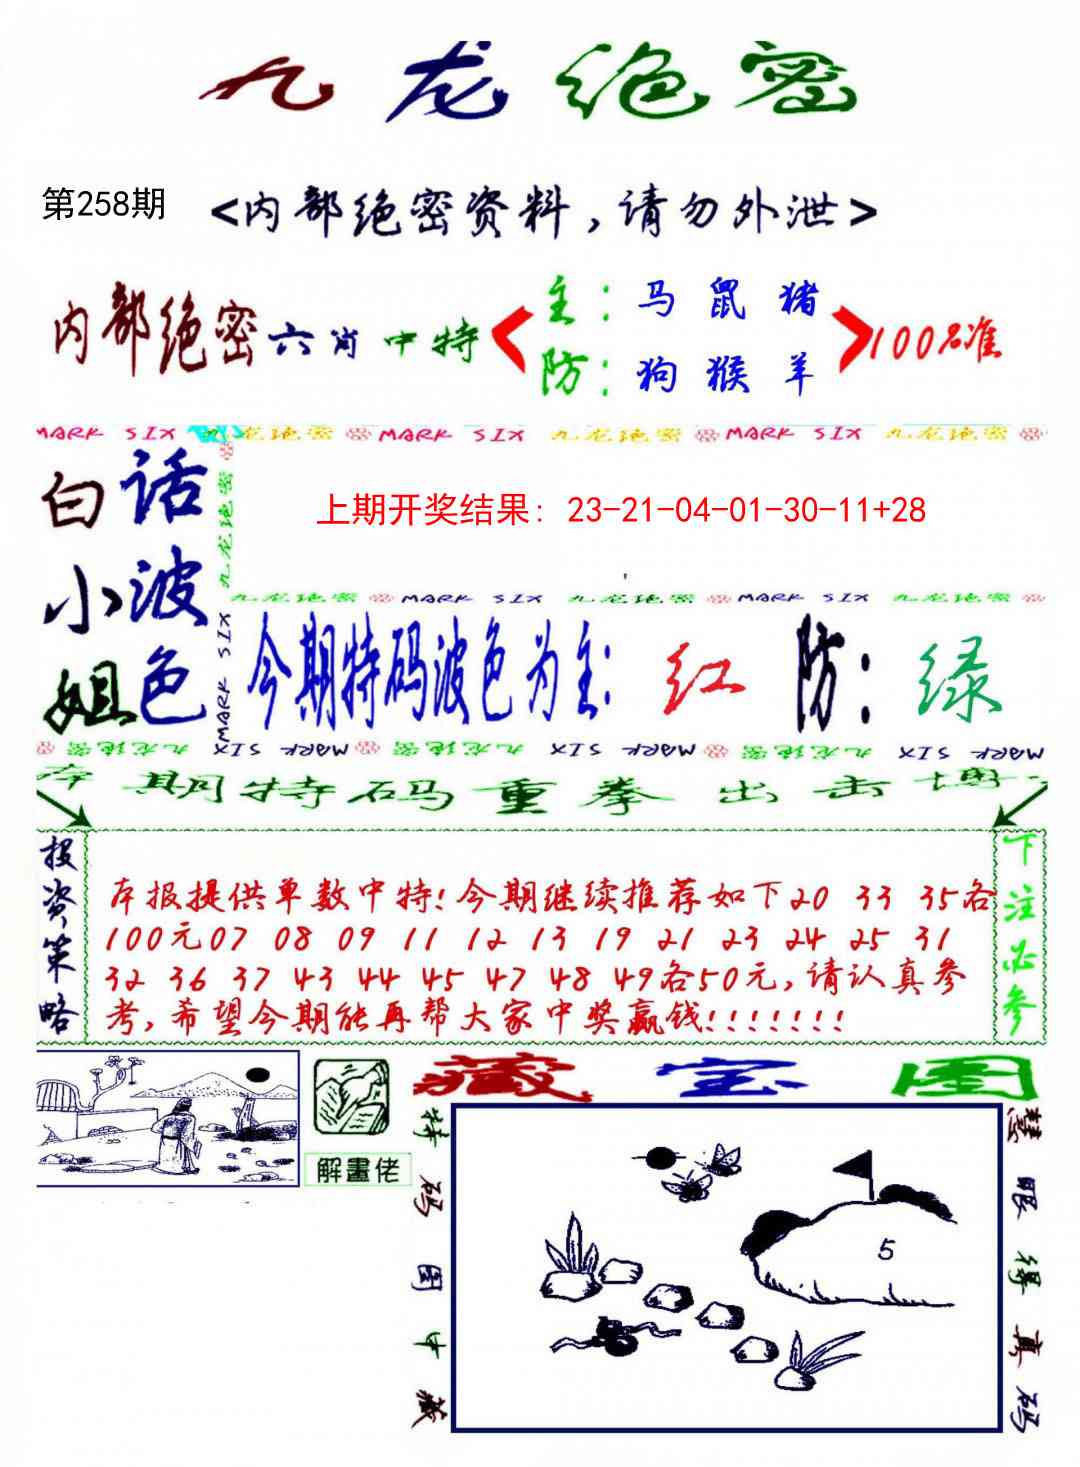 九龙绝密
第258期 <内部绝密资料,请勿外泄>
内部绝密六肖中特
主:马 鼠 猪
防:狗 猴 羊
100%准
MARK SIX 九龙绝密 MARK SIX 九龙绝密 MARK SIX 九龙绝密
白小姐
话波色
九龙绝密
MARK SIX
上期开奖结果: 23-21-04-01-30-11+28
九龙绝密 MARK SIX 九龙绝密 MARK SIX 九龙绝密
今期特码波色为主: 红 防: 绿
九龙绝密 MARK SIX 九龙绝密 MARK SIX 九龙绝密 MARK SIX
本期特码重拳出击博
投资策略
本报提供单数中特!今期继续推荐如下20 33 35各
100元07 08 09 11 12 13 19 21 23 24 25 31
32 36 37 43 44 45 47 48 49各50元,请认真参
考,希望今期能再帮大家中奖赢钱!!!!!!!
下注必参
解畫佬
藏宝图
特码图中藏
5
慧眼得真码